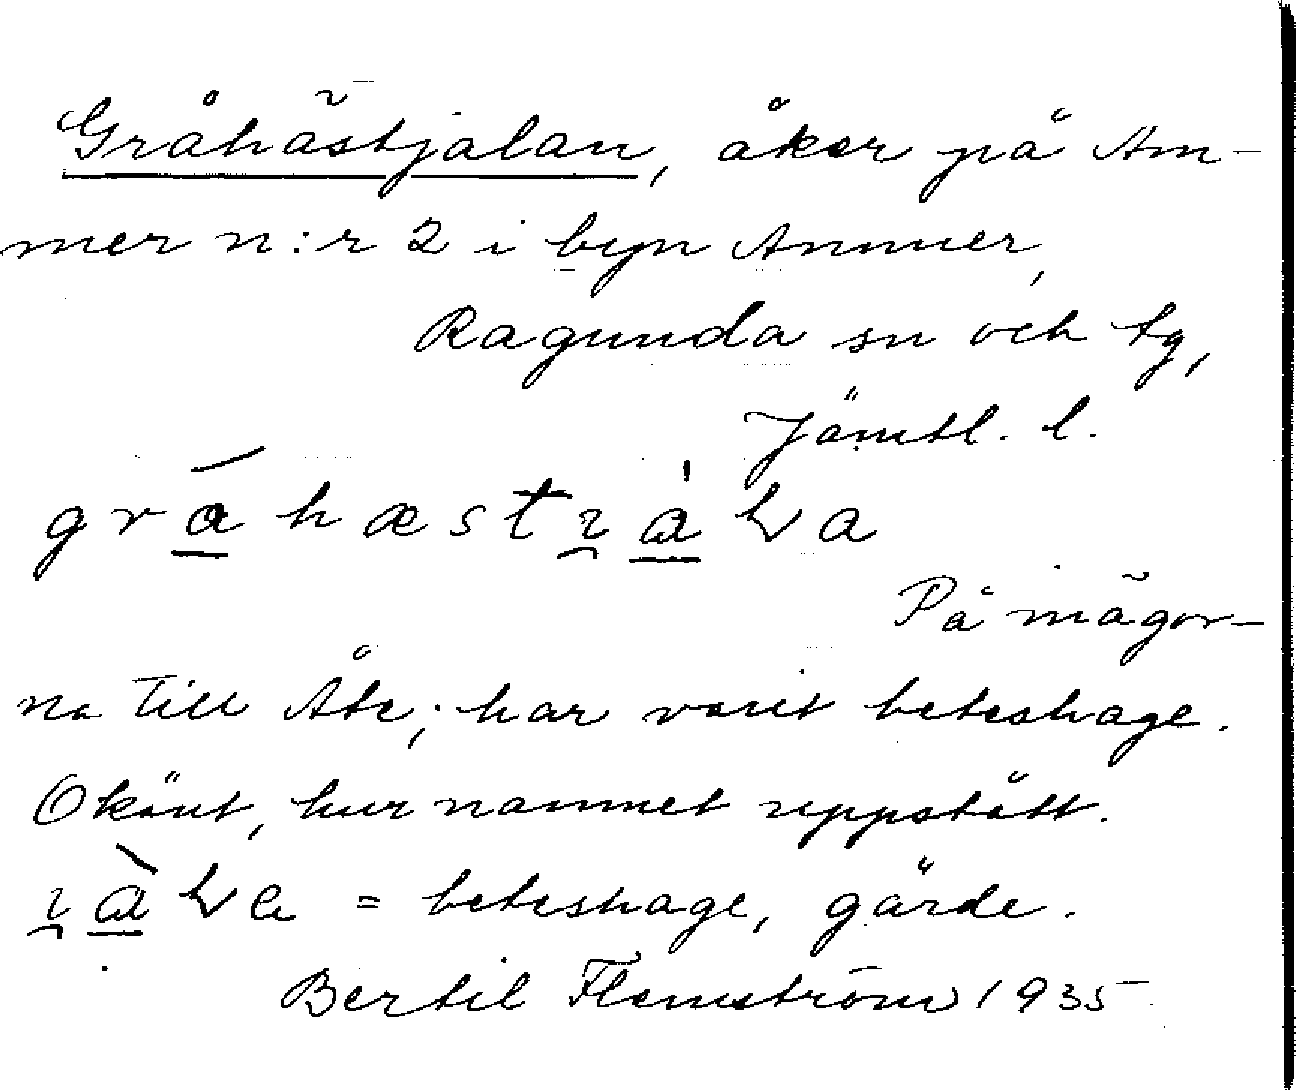 Gråhästjalan, åker på Am-
mer n:r 2 i byn Ammer,
Ragunda sn och tg,
Jämtl. l.
På mägor-
na till Åke; har varit beteshage.
Okänt, hur namnet uppstått.
= beteshage, gärde.
Bertil Flemström 1935